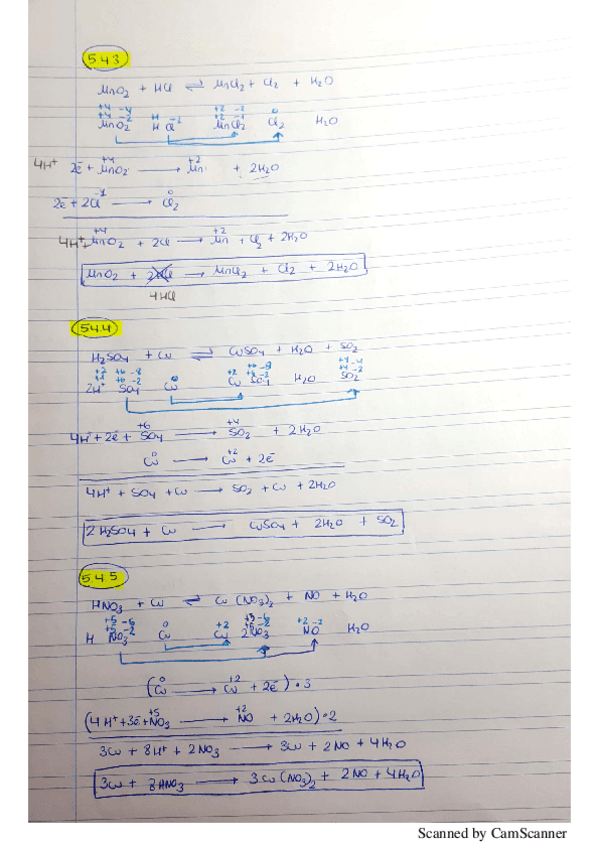 5.4.3
MnO2 + HCl ⇌ MnCl2 + Cl2 + H2O
+4 -4 +2 -2
+4 -2 H -1 +2 -1 0
MnO2 H Cl MnCl2 Cl2 H2O
4H+ 2e- + +4 MnO2 → +2 Mn + 2H2O
2e- + 2Cl -1 → 0 Cl2
4H+ + +4 MnO2 + 2Cl → +2 Mn + Cl2 + 2H2O
MnO2 + → MnCl2 + Cl2 + 2H2O
4HCl
5.4.4
H2SO4 + Cu ⇌ CuSO4 + H2O + SO2
+2 +6 -8 +6 -8 +4 -4
+1 +6 -2 0 +2 +6 -2 +4 -2
2H+ SO4 Cu Cu SO4 H2O SO2
4H+ + 2e- + +6 SO4 → +4 SO2 + 2H2O
0 Cu → +2 Cu + 2e-
4H+ + SO4 + Cu → SO2 + Cu + 2H2O
2H2SO4 + Cu → CuSO4 + 2H2O + SO2
5.4.5
HNO3 + Cu ⇌ Cu(NO3)2 + NO + H2O
+5 -6 +5 -6
+5 -2 0 +2 +5 -2 +2 -2
H NO3 Cu Cu 2NO3 NO H2O
(0 Cu → +2 Cu + 2e-) · 3
(4H+ + 3e- + +5 NO3 → +2 NO + 2H2O) · 2
3Cu + 8H+ + 2NO3 → 3Cu + 2NO + 4H2O
3Cu + 8HNO3 → 3Cu(NO3)2 + 2NO + 4H2O
Scanned by CamScanner